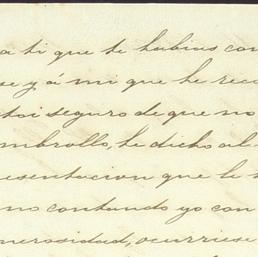 a ti que te habias con
se y á mi que he reco
toi seguro de que no
mbrollo, he dicho al
esentacion que le
no contando yo con
nerosidad, ocurriese